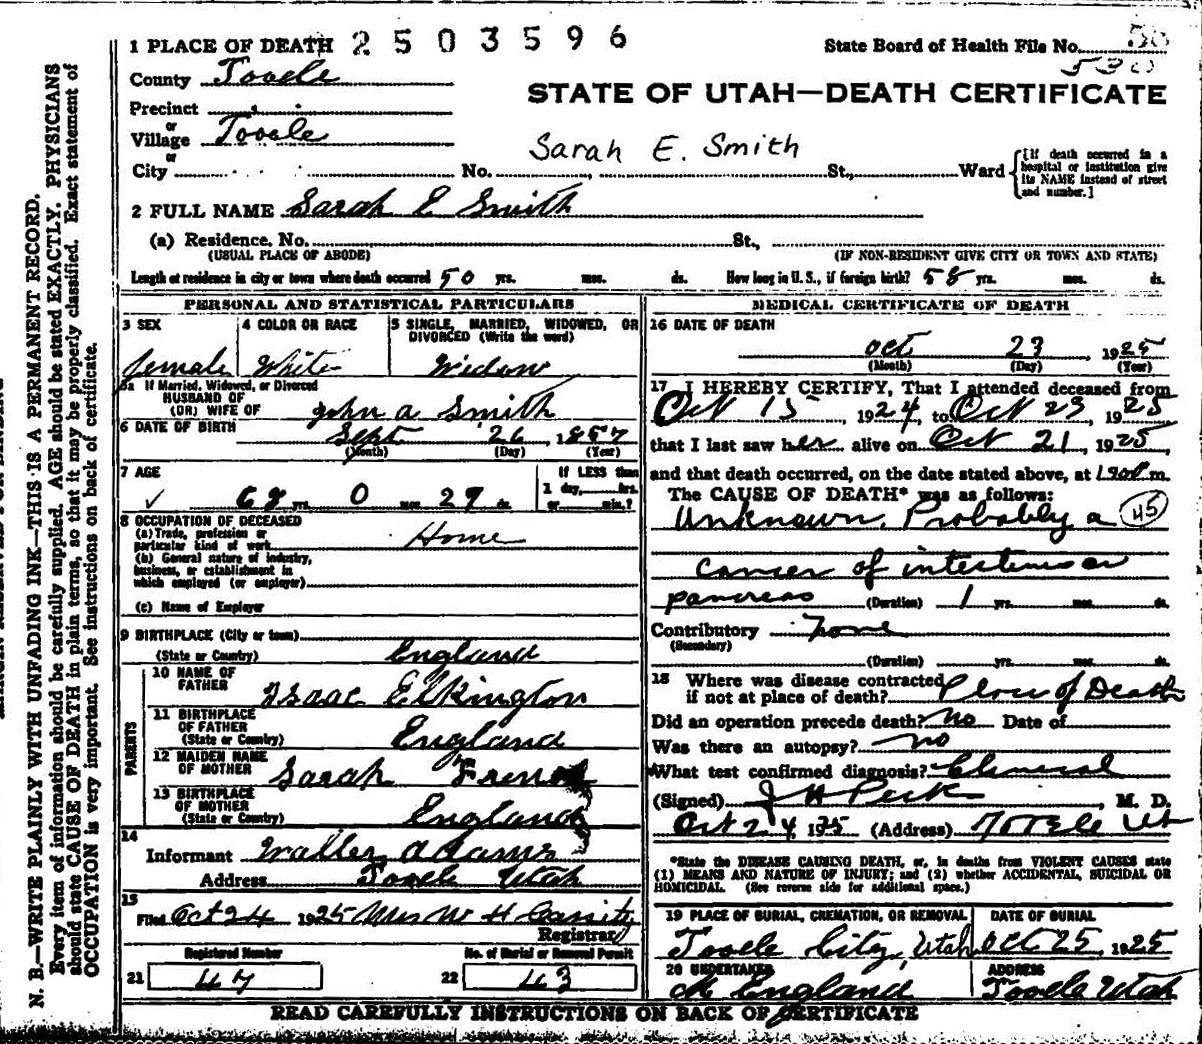 1 PLACE OF DEATH 2503596 State Board of Health File No. 50
530
County Tooele
STATE OF UTAH—DEATH CERTIFICATE
Precinct
or
Village Tooele
or
Sarah E. Smith
City No. St., Ward [If death occurred in a hospital or institution give its NAME instead of street and number.]
2 FULL NAME Sarah E Smith
(a) Residence. No. St.,
(USUAL PLACE OF ABODE) (IF NON-RESIDENT GIVE CITY OR TOWN AND STATE)
Length of residence in city or town where death occurred 50 yrs. mos. ds. How long in U. S., if foreign birth? 58 yrs. mos. ds.
PERSONAL AND STATISTICAL PARTICULARS
3 SEX 4 COLOR OR RACE 5 SINGLE, MARRIED, WIDOWED, OR
DIVORCED (Write the word)
female White Widow
5a If Married, Widowed, or Divorced
HUSBAND OF
(OR) WIFE OF John A Smith
6 DATE OF BIRTH Sept 26, 1857
(Month) (Day) (Year)
7 AGE If LESS than
1 day, hrs.
68 yrs. 0 mos. 29 ds. or min.?
8 OCCUPATION OF DECEASED
(a) Trade, profession or
particular kind of work Home
(b) General nature of industry,
business, or establishment in
which employed (or employer)
(c) Name of Employer
9 BIRTHPLACE (City or town)
(State or Country) England
PARENTS
10 NAME OF
FATHER Isaac Elkington
11 BIRTHPLACE
OF FATHER
(State or Country) England
12 MAIDEN NAME
OF MOTHER Sarah
13 BIRTHPLACE
OF MOTHER
(State or Country) England
14
Informant Walter Adams
Address Tooele Utah
15
Filed Oct 24 1925 Mrs W H
Registrar
Registered Number No. of Burial or Removal Permit
21 47 22 43
MEDICAL CERTIFICATE OF DEATH
16 DATE OF DEATH
Oct 23, 1925
(Month) (Day) (Year)
17 I HEREBY CERTIFY, That I attended deceased from
Oct 15, 1924, to Oct 23, 1925
that I last saw her alive on Oct 21, 1925,
and that death occurred, on the date stated above, at m.
The CAUSE OF DEATH* was as follows:
Unknown. Probably a 45
cancer of intestines or
pancreas (Duration) 1 yrs. mos. ds.
Contributory None
(Secondary)
(Duration) yrs. mos. ds.
18 Where was disease contracted
if not at place of death? Place of Death
Did an operation precede death? No Date of
Was there an autopsy? no
What test confirmed diagnosis? Clinical
(Signed) J H Peck, M. D.
Oct 24 1925 (Address) Tooele Ut
*State the DISEASE CAUSING DEATH, or, in deaths from VIOLENT CAUSES state
(1) MEANS AND NATURE OF INJURY; and (2) whether ACCIDENTAL, SUICIDAL OR
HOMICIDAL. (See reverse side for additional space.)
19 PLACE OF BURIAL, CREMATION, OR REMOVAL DATE OF BURIAL
Tooele City, Utah Oct 25, 1925
20 UNDERTAKER ADDRESS
M England Tooele Utah
READ CAREFULLY INSTRUCTIONS ON BACK OF CERTIFICATE
N. B.—WRITE PLAINLY WITH UNFADING INK—THIS IS A PERMANENT RECORD.
Every item of information should be carefully supplied. AGE should be stated EXACTLY. PHYSICIANS
should state CAUSE OF DEATH in plain terms, so that it may be properly classified. Exact statement of
OCCUPATION is very important. See instructions on back of certificate.